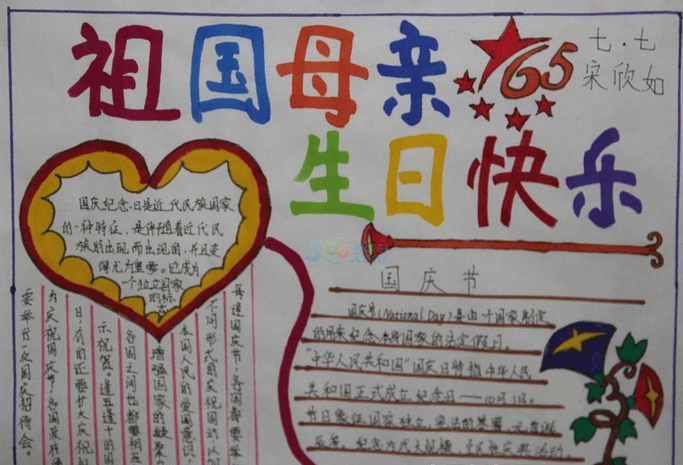 祖国母亲
65
七.七
宋欣如
生日快乐
国庆纪念日是近代民族国家
的一种特征,是伴随着近代民
族的出现而出现的,并且变
得尤为重要。它成为
一个独立国家
的标
志
国庆节
国庆节(National Day)是由一个国家制定
的用来纪念本身国家的法定假日
"中华人民共和国"国庆日特指中华人民
共和国正式成立纪念日——10月1日。
节日象征国家独立,宪法的签署,元首诞
纪念方式大规模,全民性庆典活动
每逢国庆节,各国都要举
不同形式的庆祝活动,以加
本国人民的爱国意识,
增强国家的凝聚力
各国之间也都要相互
示祝贺。逢五逢十的国
日,有的还要扩大庆祝
为庆祝国庆节,各国政府通
要举行一次国庆招待会。